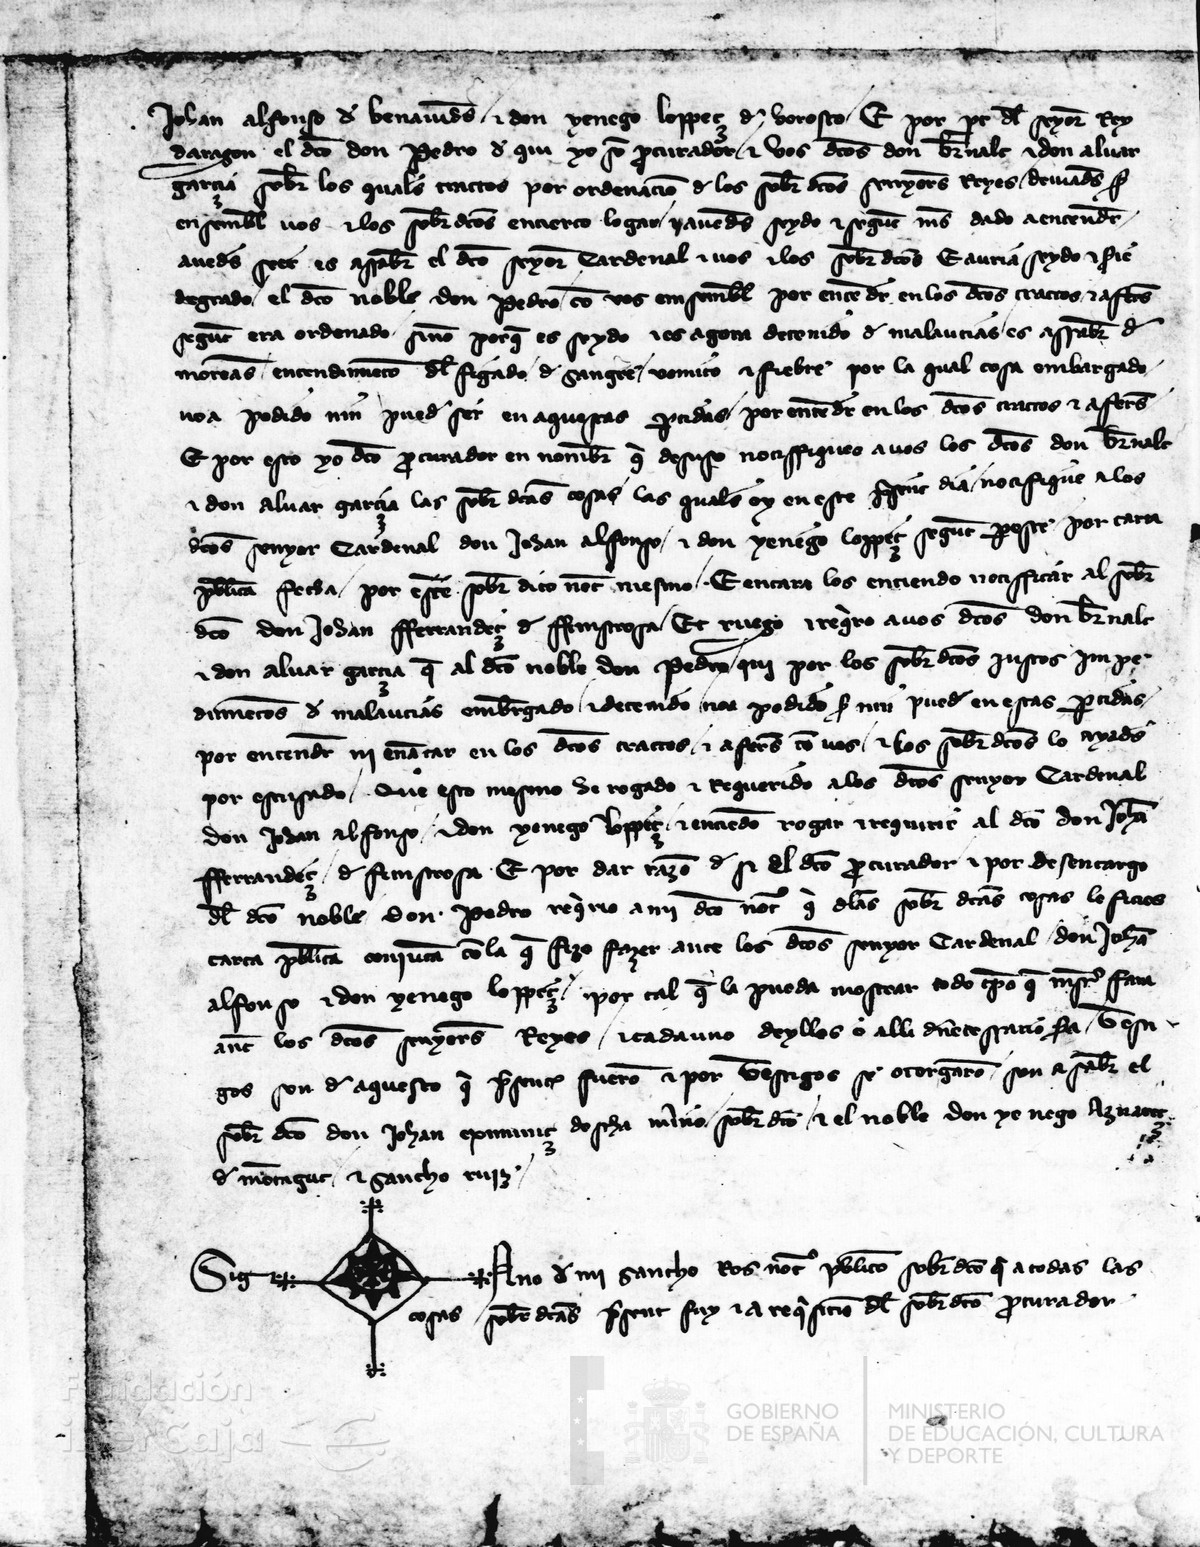 Johan alfonso d benauids / τ don yenego loppeç d vorosco / E por pt dl seyor Rey
daragon el dco don Pedro d qui yo so procurador / τ vos dcos don bernalt τ don aluar
garcia sobr los quals tractos por ordenacio d los sobr dcos senyors Reyes / deuiads
ensembl uos τ los sobr dcos en cierto logar / τ aueds seydo τ segut mes dado a entender /
aueds seer es assaber el dco seyor Cardenal τ uos τ los sobr dcos E auria seydo τ
degrado el dco noble don Pedro co vos ensembl por enteder en los dcos tractos τ afers
segut era ordenado sino porq es seydo τ es agora detenido d malautias es assaber d
morenas / encendimieto dl figado d sangre / uomito τ fiebre por la qual cosa embargado
no a podido nin pued ser en aquestas ptidas / por entender en los dcos tractos τ afers
E por esto yo dco procurador en nombr q desuso notiffiqueo a uos los dcos don bernalt
τ don aluar garcia las sobr dcas cosas / las quals oy en este psent dia / notifique a los
dcos senyor Cardenal don Johan alfonso / τ don yenego loppeç segut pesce por carta
publica fecha / por este sobr dito not mesmo · E encara los entiendo notifficar al sobr
dco don Johan fferrandeç d ffinistrosa / Et ruego τ reqro a uos dcos don bernalt
τ don aluar garcia q al dco noble don Pedro / qui por los sobr dcos justos impe
dimietos d malautias embrgado τ detenido no a podido nin pued en estas ptidas /
por entendr ni enatar en los dcos tractos / τ afers co uos / τ los sobr dcos lo ayads
por escusado / Que esto mesmo he rogado τ requerido a los dcos senyor Cardenal
don Johan alfonso / τ don yenego loppeç / τ entiedo rogar τ requirir al dco don Joha
fferrandeç d finistrosa · E por dar razo d si El dco procurador τ por desencargo
dl dco noble don Pedro reqrio a mi dco not q dlas sobr dcas cosas le ficies
carta publica conjucta co la q fizo fazer ante los dcos senyor Cardenal / don Joha
alfonso τ don yenego loppeç / por tal q la pueda mostrar todo tpo q mest fara
ant los dcos senyors Reyes / τ cada uno deyllos o alli dnecessario sea / Testi
gos son d aquesto q psents fuero τ por Testigos se otorgaro son a saber el
sobr dco don Johan exemeniç doscha / sobr dco / τ el noble don yenego Aznareç
d motagut / τ Sancho ruiz /
Sig no d mi Sancho Ros not publico sobr dco q a todas las
cosas sobr dcas psent fuy τ a reqsicio dl sobr dco procurador
Fundación
iberCaja
GOBIERNO
DE ESPAÑA
MINISTERIO
DE EDUCACIÓN, CULTURA
Y DEPORTE